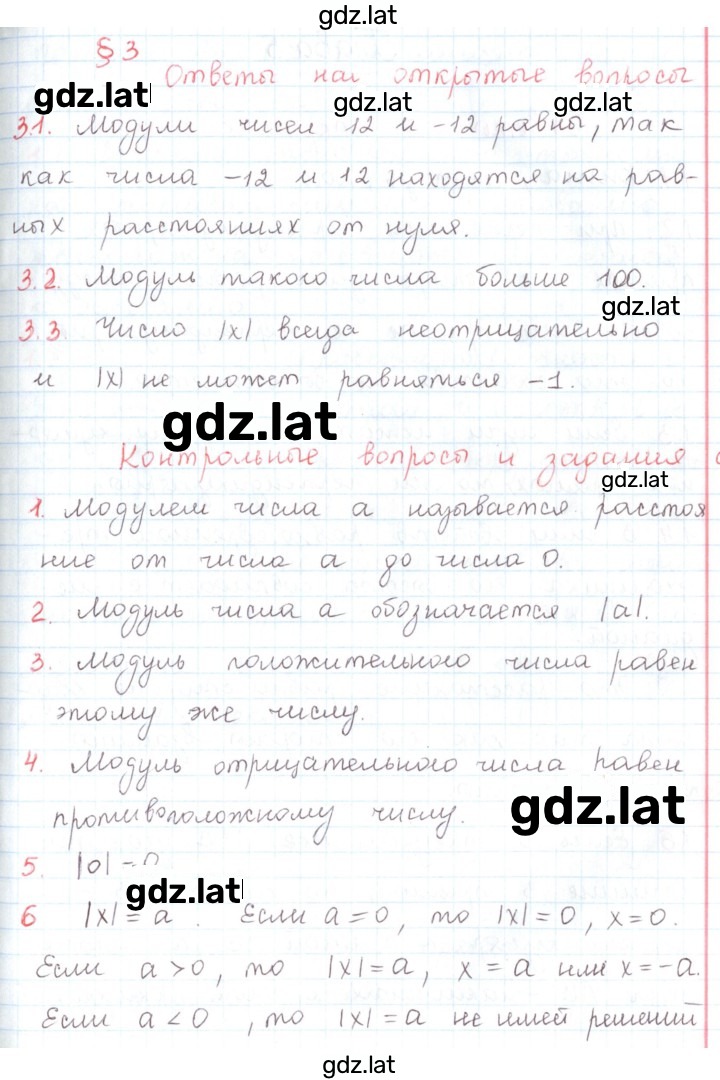 gdz.lat
§ 3
Ответы на открытые вопросы
gdz.lat
gdz.lat
gdz.lat
3.1. Модули чисел 12 и -12 равны, так
как числа -12 и 12 находятся на рав-
ных расстояниях от нуля.
3.2. Модуль такого числа больше 100.
gdz.lat
3.3 Число |x| всегда неотрицательно
и |x| не может равняться -1.
gdz.lat
Контрольные вопросы и задания
gdz.lat
1. Модулем числа a называется расстоя
ние от числа a до числа 0.
2. Модуль числа a обозначается |a|.
3. Модуль положительного числа равен
этому же числу.
4. Модуль отрицательного числа равен
противоположному числу.
gdz.lat
5. |0| = 0
gdz.lat
6 |x| = a. Если a = 0, то |x| = 0, x = 0.
Если a > 0, то |x| = a, x = a или x = -a.
Если a < 0, то |x| = a не имей решений
gdz.lat